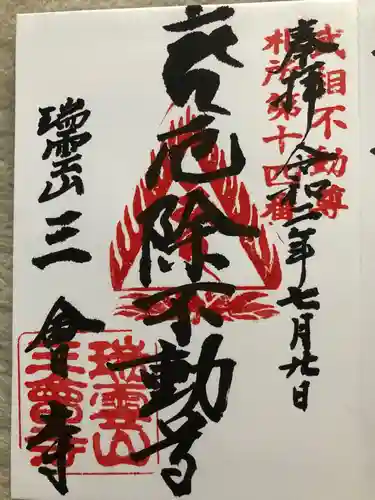 奉拝 令和二年七月廿日
武相不動尊
札所第十四番
厄除不動尊
瑞雲山 三會寺
瑞雲山
三會寺